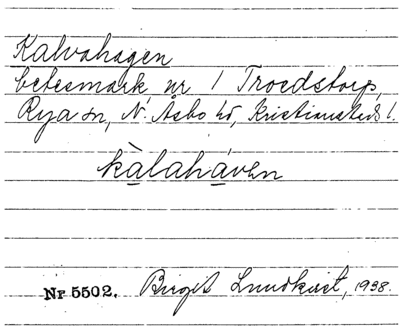 Kalvahagen
betesmark nr 1 Troedstorp,
Rya sn, N. Åsbo hd, Kristianstads l.
kàlahàven
Nr 5502. Birgit Lundkvist, 1938.